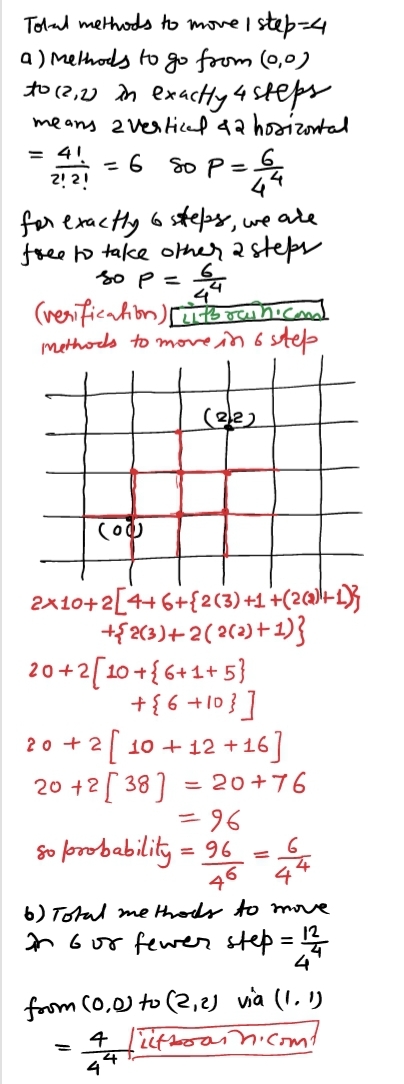 Total methods to move 1 step=4
a) Methods to go from (0,0)
to (2,2) in exactly 4 steps
means 2 vertical & 2 horizontal
= 4!/2!2! = 6 so P = 6/4^4
for exactly 6 steps, we are
free to take other 2 steps
so P = 6/4^4
(verification)
methods to move in 6 step
(2,2)
(0,0)
2×10+2[4+6+{2(3)+1+(2(2)+1)}
+{2(3)+2(2(2)+1)}
20+2[10+{6+1+5}
+{6+10}]
20+2[10+12+16]
20+2[38] = 20+76
= 96
so probability = 96/4^6 = 6/4^4
b) Total methods to move
in 6 or fewer step = 12/4^4
from (0,0) to (2,2) via (1,1)
= 4/4^4